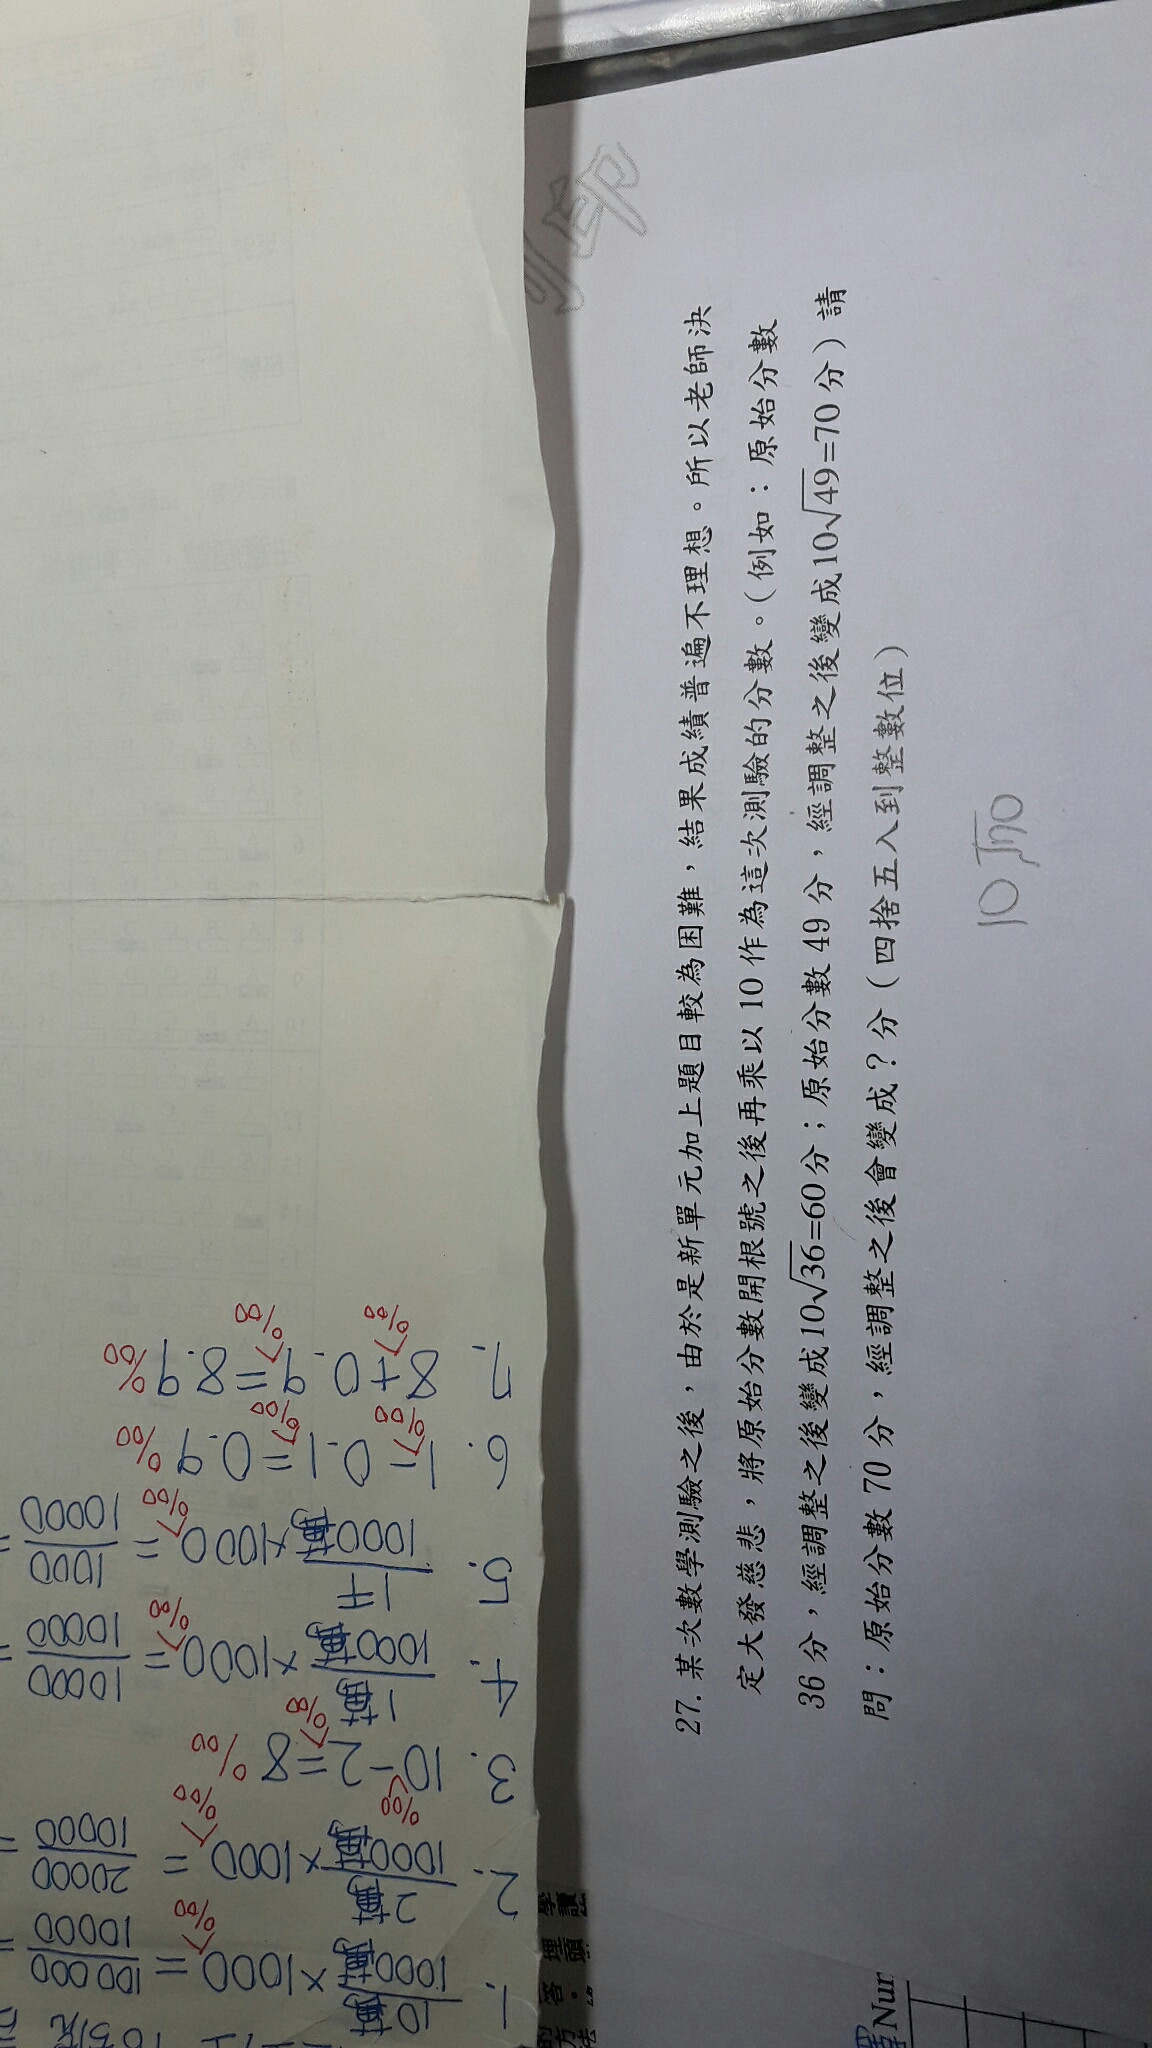 27. 某次數學測驗之後，由於是新單元加上題目較為困難，結果成績普遍不理想。所以老師決
定大發慈悲，將原始分數開根號之後再乘以10作為這次測驗的分數。（例如：原始分數
36分，經調整之後變成10√36=60分；原始分數49分，經調整之後變成10√49=70分）請
問：原始分數70分，經調整之後會變成？分（四捨五入到整數位）
10√70
印
1. 10萬/1000萬 × 1000‰ = 100000/10000 =
2. 2萬/1000萬 × 1000‰ = 20000/10000 =
3. 10‰ - 2‰ = 8‰
4. 1萬/1000萬 × 1000‰ = 10000/10000 =
5. 1千/1000萬 × 1000‰ = 1000/10000 =
6. 1‰ - 0.1‰ = 0.9‰
7. 8‰ + 0.9‰ = 8.9‰
Nur